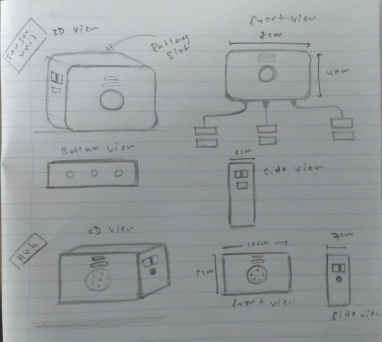 Sensor unit
3D view
Battery slot
front view
8cm
4cm
Bottom view
2cm
side view
3D view
Hub
10cm
5cm
front view
side view